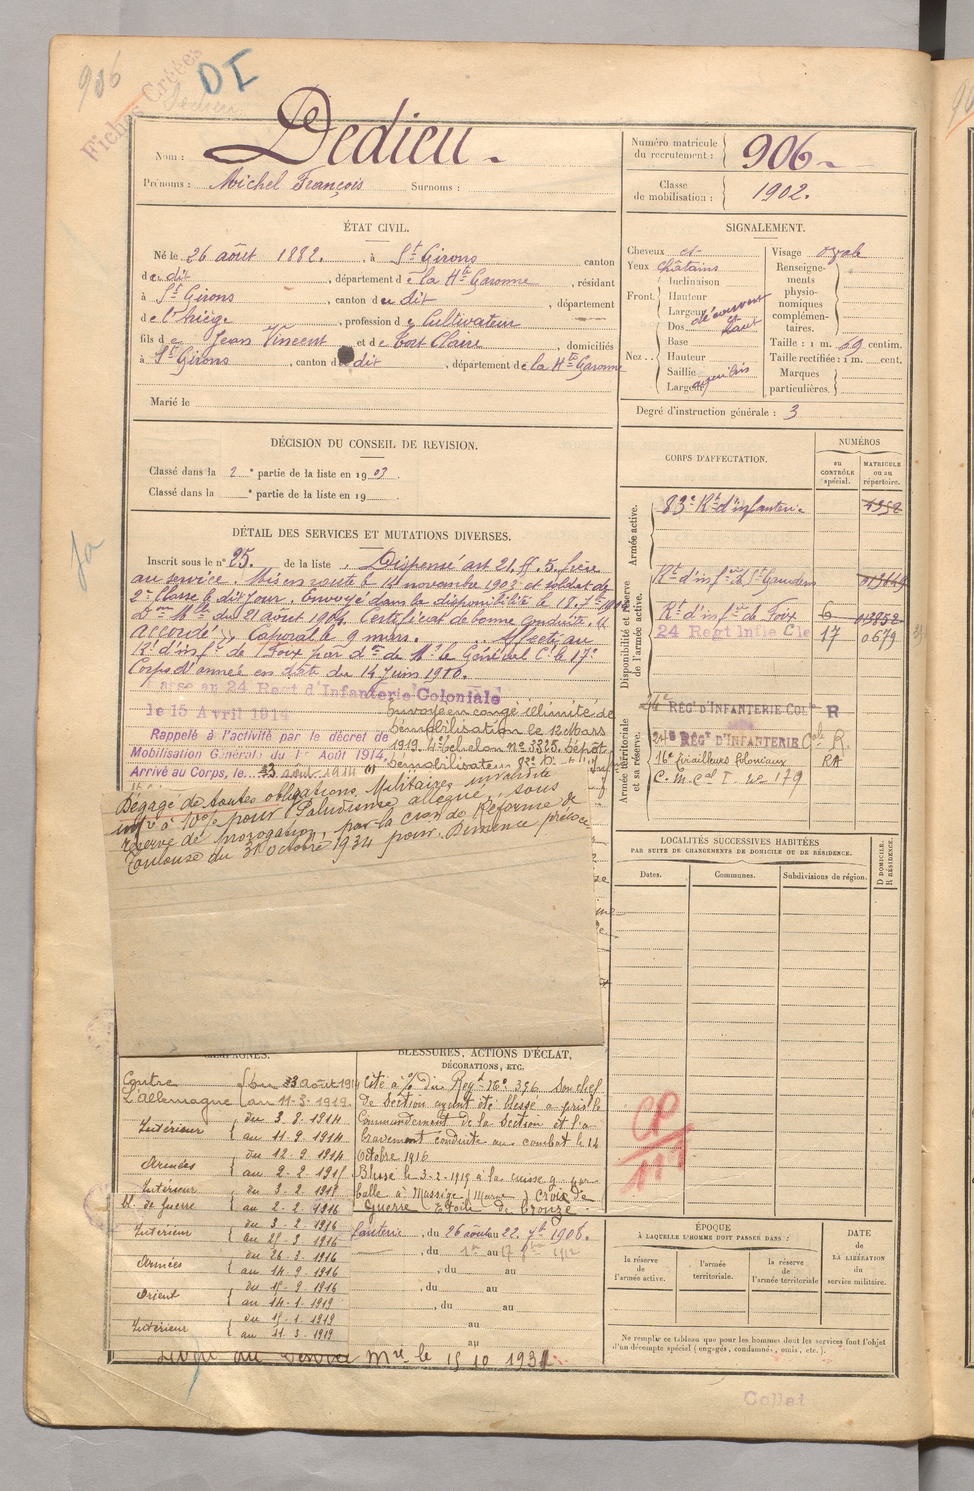 906
DI
Fiches Créées
Nom : Dedieu
Prénoms : Michel François Surnoms :
Numéro matricule du recrutement : 906
Classe de mobilisation : 1902.
ÉTAT CIVIL.
Né le 26 août 1882. , à St Girons canton
du dit , département de la Hte Garonne , résidant
à St Girons , canton du dit , département
de l'Ariège , profession de Cultivateur
fils de Jean Vincent et de Tort Claire , domiciliés
à St Girons , canton du dit , département de la Hte Garonne
Marié le
SIGNALEMENT.
Cheveux et
Yeux châtains
Front. Inclinaison
Hauteur
Largeur découvert
Dos et haut
Nez .. Base
Hauteur
Saillie
Largeur
Visage ovale
Renseignements physionomiques complémentaires.
Taille : 1 m. 69 centim.
Taille rectifiée : 1 m. cent.
Marques particulières.
Degré d'instruction générale : 3
DÉCISION DU CONSEIL DE REVISION.
Classé dans la 2 e partie de la liste en 1903.
Classé dans la e partie de la liste en 19
DÉTAIL DES SERVICES ET MUTATIONS DIVERSES.
Inscrit sous le n° 25. de la liste . Dispensé art 21. § 5. frère
au service. Mis en route le 14 novembre 1903 et soldat de
2e classe le dit jour. Envoyé dans la disponibilité le 18.7bre
du 21 août 1904. Certificat de bonne conduite. "
accordé". Caporal le 9 mars. Affecté au
Rt d'infie de Foix par don de Mr le Général Ct le 17e
Corps d'armée en date du 14 Juin 1910.
Passé au 24 Régt d'Infanterie Coloniale
le 15 Avril 1914
Rappelé à l'activité par le décret de
Mobilisation Générale du 1er Août 1914.
Arrivé au Corps, le 3 août 1914
Envoyé en congé illimité de
Démobilisation le 12 Mars
1919. 4e échelon No 3325. Dépôt
Démobilisateur 83e
Dégagé de toutes obligations Militaires, invalidité
infre à 10% pour "Paludisme allégué", sous
réserve de prorogation, par la cion de Réforme de
Toulouse du 31 octobre 1934 pour: Démence précoce
CORPS D'AFFECTATION.
NUMÉROS
au CONTRÔLE spécial.
MATRICULE ou au répertoire.
Armée active.
83e Rt d'infanterie
Disponibilité et réserve de l'armée active.
Rt d'infrie de St Gaudens
Rt d'infie de Foix 6 03852
24 Régt Infie Cle 17 0679
Armée territoriale et sa réserve.
24e RÉGt D'INFANTERIE COLe R
24e RÉGt D'INFANTERIE Cole R.
16e Tirailleurs Coloniaux RA
C. M. Cal T. No 179
LOCALITÉS SUCCESSIVES HABITÉES
PAR SUITE DE CHANGEMENTS DE DOMICILE OU DE RÉSIDENCE.
Dates. Communes. Subdivisions de région. D DOMICILE. R RÉSIDENCE.
CAMPAGNES.
Contre
L'Allemagne du 3 août 1914
au 11-3-1919.
Intérieur du 3.8.1914
au 11.9.1914
Armées du 12.9.1914
au 2-2-1915
Intérieur du 3.2.1915
Bl. de Guerre au 2.2.1916
Intérieur du 3-2-1916
au 25-3-1916
Armées du 26-3-1916
au 14-9-1916
Orient du 15-9-1916
au 14-1-1919
Intérieur du 15-1-1919
au 11.3-1919
BLESSURES, ACTIONS D'ÉCLAT,
DÉCORATIONS, ETC.
Cité à l'O/ du Régt No 396 Son chef
de Section ayant été blessé a pris le
Commandement de la Section et l'a
bravement conduite au combat le 14
Octobre 1916
Blessé le 3-2-1915 à la cuisse g. par
balle à Massiges (Marne) Croix de
Guerre Etoile de bronze.
, du 26 août au 22. 7bre 1908.
, du 1er au 17 1912
, du au
, du au
, du au
au
au
Livré au Service Mre le 15 10 1934
CP
117
ÉPOQUE
À LAQUELLE L'HOMME DOIT PASSER DANS :
la réserve de l'armée active.
l'armée territoriale.
la réserve de l'armée territoriale
DATE de LA LIBÉRATION du service militaire.
Ne remplir ce tableau que pour les hommes dont les services font l'objet
d'un décompte spécial (engagés, condamnés, omis, etc.).
Collat